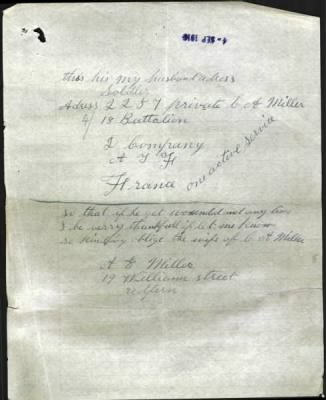 4- SEP 1916
this his my husband adress
Soldier
Adress 2257 private C A Miller
4/ 18 Battalion
D Company
A I F
Franc one active service
so that if he get wounded not any time
I be verry thankfull if let me know
so kindley oblige the wife of C A Miller
A E Miller
19 William street
redfern